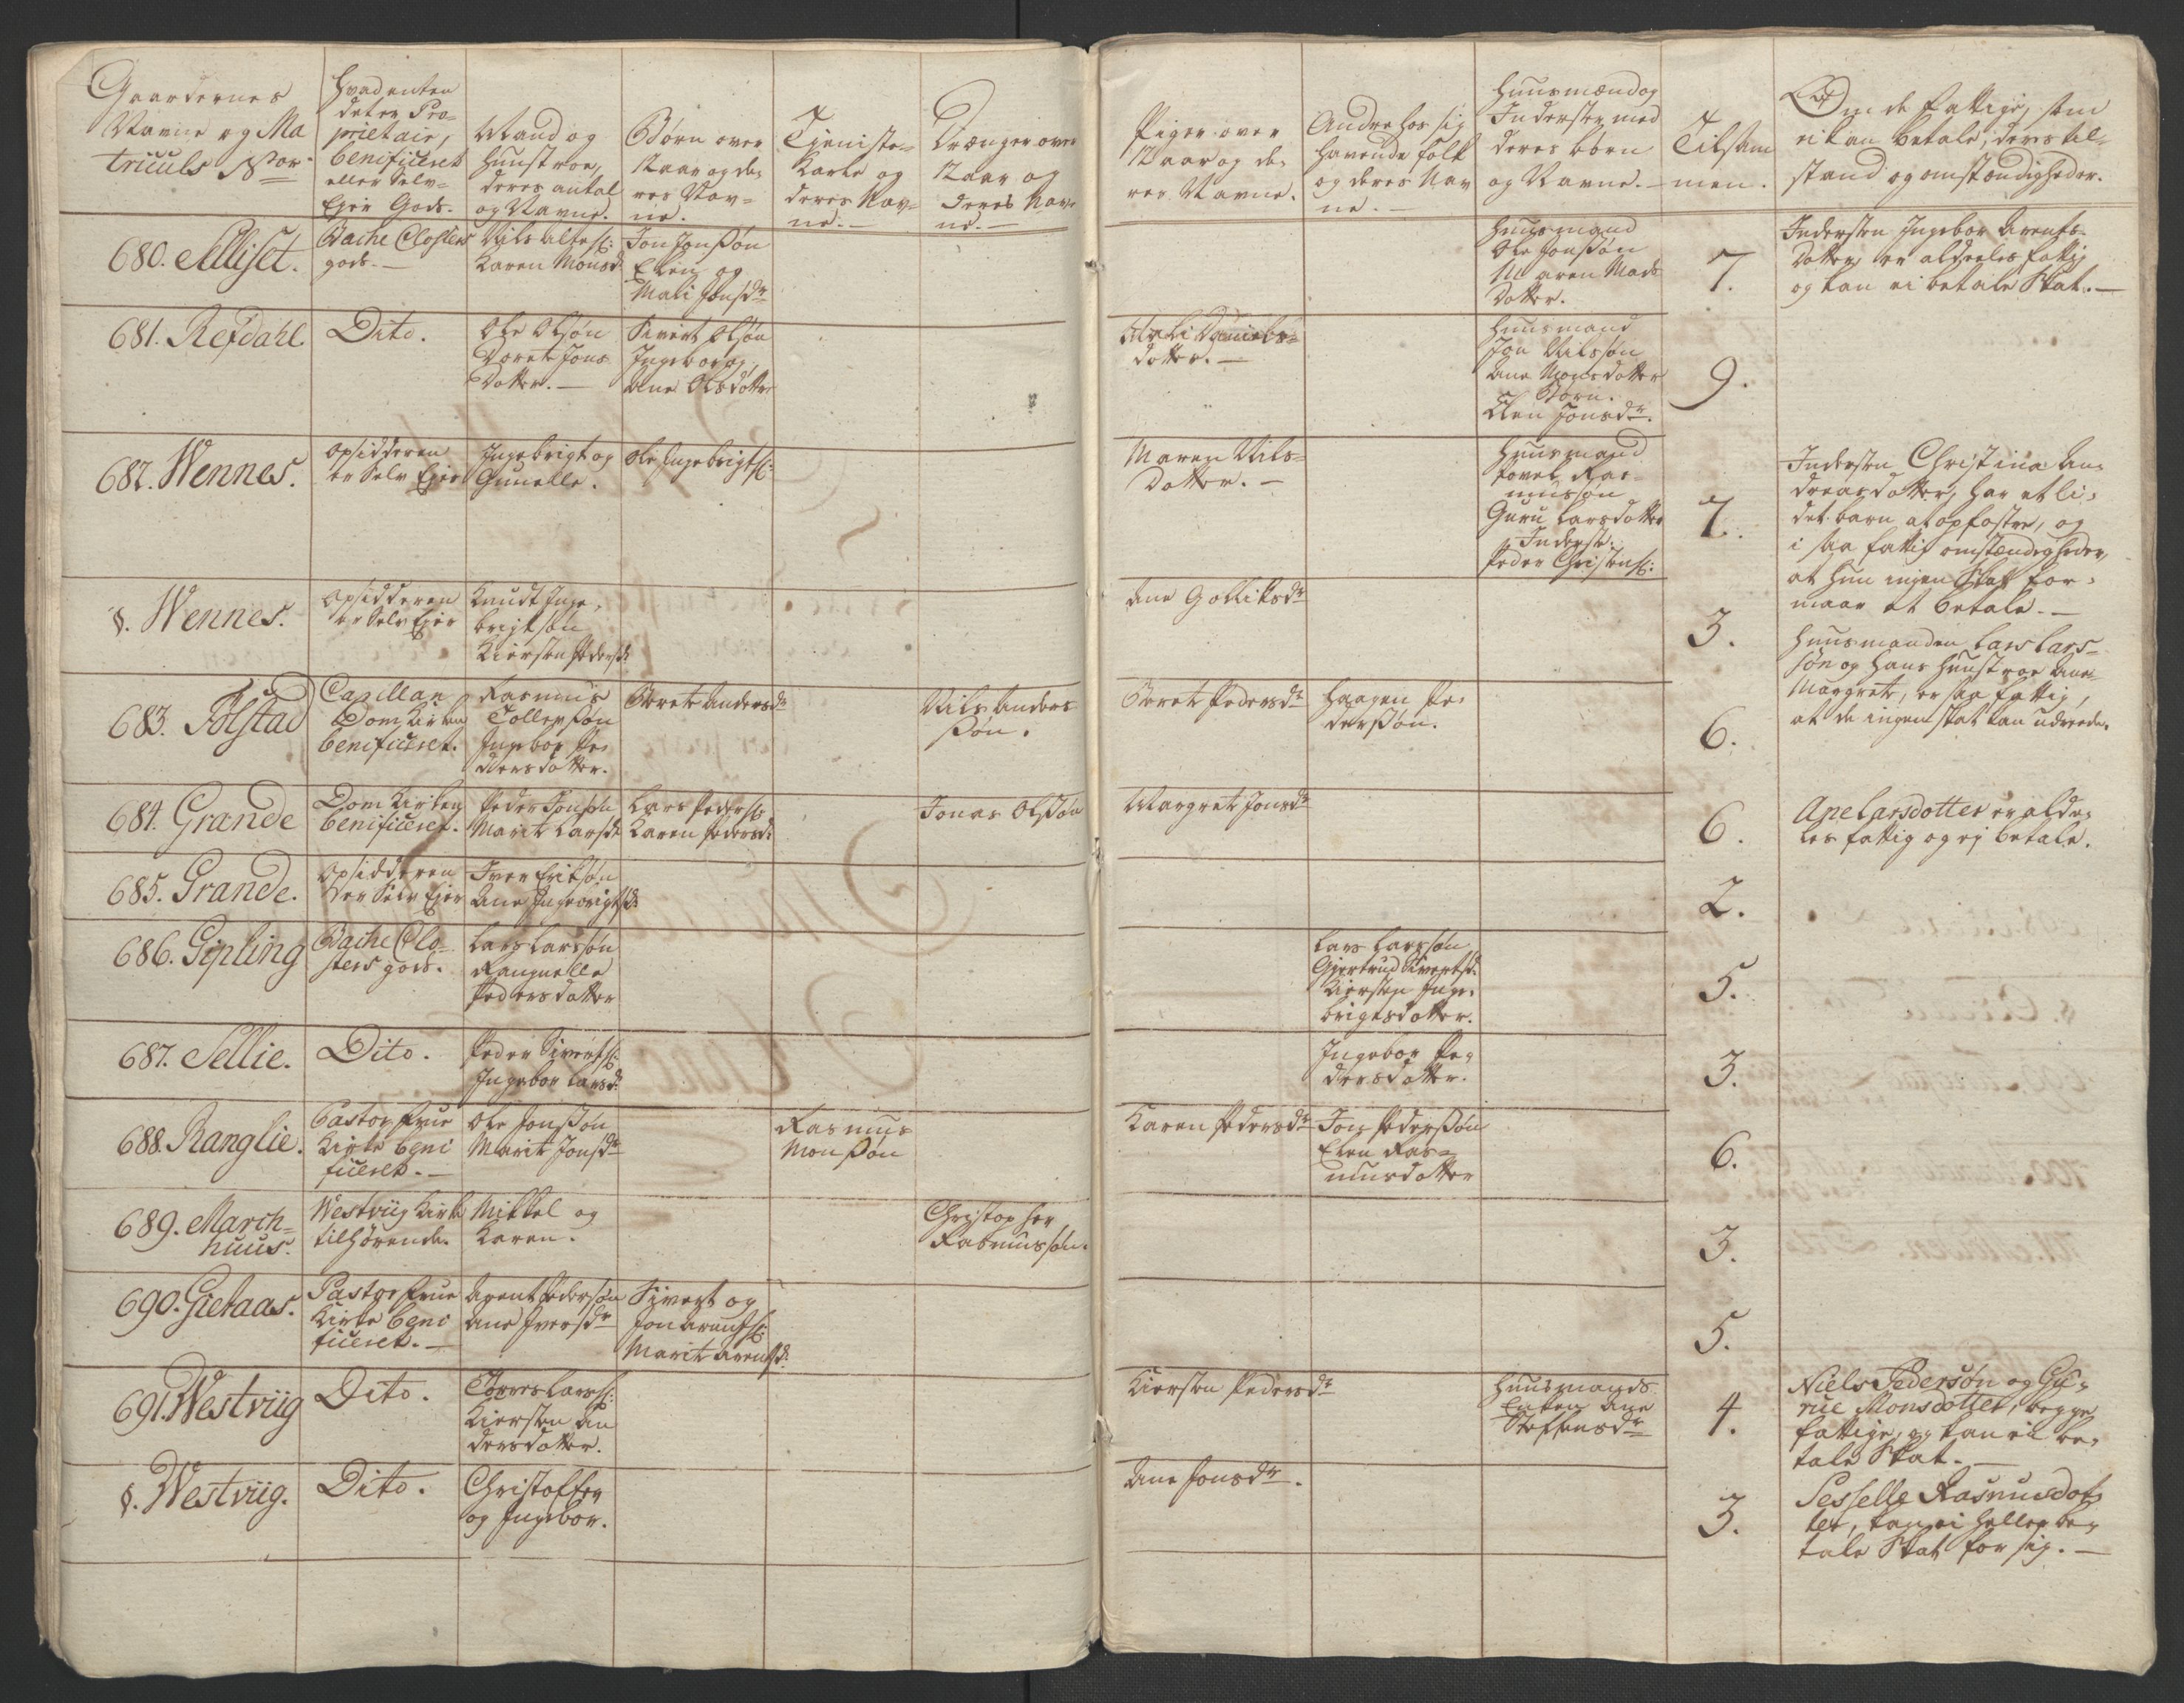 Gaardernes
Navne og Ma
triculs No:
Hvad enten
det er Pro-
prietair,
benificeret
eller Selv-
Ejer Gods.
Mand og
Hunstroe,
deres antal
og Navne.
Børn over
12 aar og de-
res Nav-
ne.
Tjeniste-
Karle og
deres Nav-
ne.
Drænger over
12 aar og
deres Nav-
ne.
Piger over
12 aar og de-
res Navne.
Andre hos sig
havende folk
og deres Nav
ne.
Huusmænd og
Inderster med
deres børn
og Navne.
Tilsam
men.
Om de fattige, som
ei kan betale, deres til-
stand og omstændigheder.
680. Melliset.
Bache Closters
gods.
Nils
Karen Monsd:
Jon Jonsøn
Elen og
Mali Jonsdr
Huusmand
Ole Jonsøn
Maren Mads
Dotter.
7.
Indersten Ingebor Arents-
Dotter er aldeeles fattig
og kan ei betale Skat.
681. Refdahl.
Dito.
Ole Olsøn
Doret Jons
Dotter.
Sivert Olsøn
Ingebor og
Ane Olsdotter
Mali Daniels-
dotter.
Huusmand
Jon Nilsøn
Ane Monsdotter
Børn.
Elen Jonsdr.
9.
682. Wennes.
Opsidderen
er Selv Ejer
Ingebrigt og
Gunelle.
Ole Ingebrigts:
Maren Nils-
Dotter.
Huusmand
Povel Ras-
mussøn
Guru Larsdotter
Inderste.
Peder Christens:
7.
Indersten Christina An-
dreasdotter, har et li-
det barn at opfostre, og
i saa fattig omstændigheder,
at hun ingen Skat for-
maar at betale.
§. Wennes.
Opsidderen
er Selv Ejer
Knudt Inge-
brigtsøn
Kiersten Pedersd:
Ane Golliksdr
3.
Huusmanden Lars Lars-
søn og hans Hunstroe Ane
Margrete, er saa fattig,
at de ingen skat kan udreede.
683. Folstad
Capillan
Dom Kirken
benificeret.
Rasmus
Tollevsøn
Ingebor Pe-
dersdotter.
Beret Andersdr
Nils Anders
søn.
Beret Pedersdr
Haagen Pe-
dersøn.
6.
684. Grande
Dom Kirken
benificeret.
Peder Jonsøn
Marit Larsdr
Lars Peders:
Karen Pedersd:
Jonas Olssøn
Margret Jonsdr
6.
Ane Larsdotter er alde-
les fattig og ej betale.
685. Grande.
Opsidderen
er Selv Ejer
Iver Eriksøn
Ane Ingebrigtsd:
2.
686. Gipling
Bache Clo-
sters gods.
Lars Larssøn
Rangnelle
Pedersdotter
Lars Larssøn
Gjertrud Sivertsd:
Kiersten Inge-
brigtsdotter.
5.
687. Sellie.
Dito.
Peder Siverts:
Ingebor Larsd:
Ingebor Pe-
dersdotter.
3.
688. Ranglie.
Pastor Frue
Kirke beni
ficeret.
Ole Jonssøn
Marit Jonsdr
Rasmus
Monssøn
Karen Pedersdr
Jon Pederssøn
Elen Ras-
musdotter
6.
689. March-
huus.
Westviig Kirke
tilhørende.
Mikkel og
Karen.
Christopher
Rasmussøn.
3.
690. Gietaas.
Pastor Frue
Kirke beni
ficeret.
Arent Pedersøn
Ane Iversdr
Sivert og
Jon Arents:
Marit Arentsd:
5.
691. Westviig
Dito.
Torres Lars:
Kiersten An
dersdotter.
Kiersten Pedersdr
Huusmands
Enken Ane
Steffensdr
4.
Niels Pedersøn og Gu-
rue Monsdotter, begge
fattige, og kan ei be-
tale Skat.
§. Westviig.
Dito.
Christoffer
og Ingebor.
Ane Jonsdr.
3.
Sesselle Rasmusdot-
ter, kan ei heller be-
tale Skat for sig.